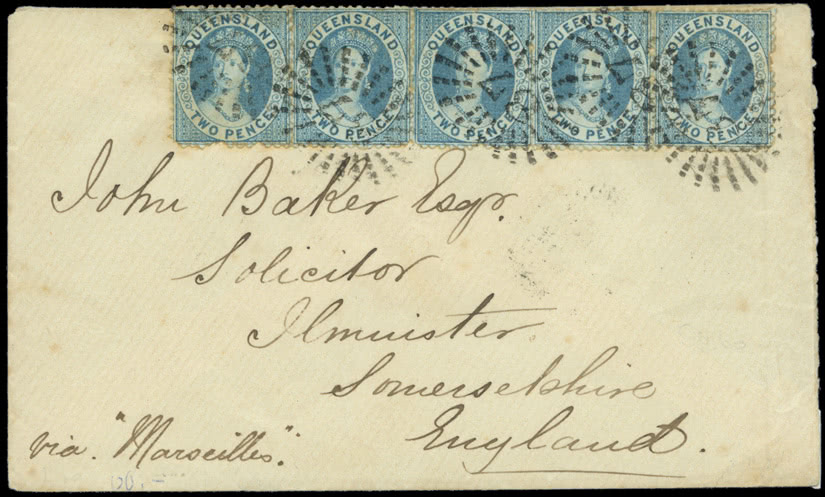 QUEENSLAND QUEENSLAND QUEENSLAND QUEENSLAND QUEENSLAND
TWO PENCE TWO PENCE TWO PENCE TWO PENCE TWO PENCE
John Baker Esqr.
Solicitor
Ilminster
Somersetshire
England.
via "Marseilles".